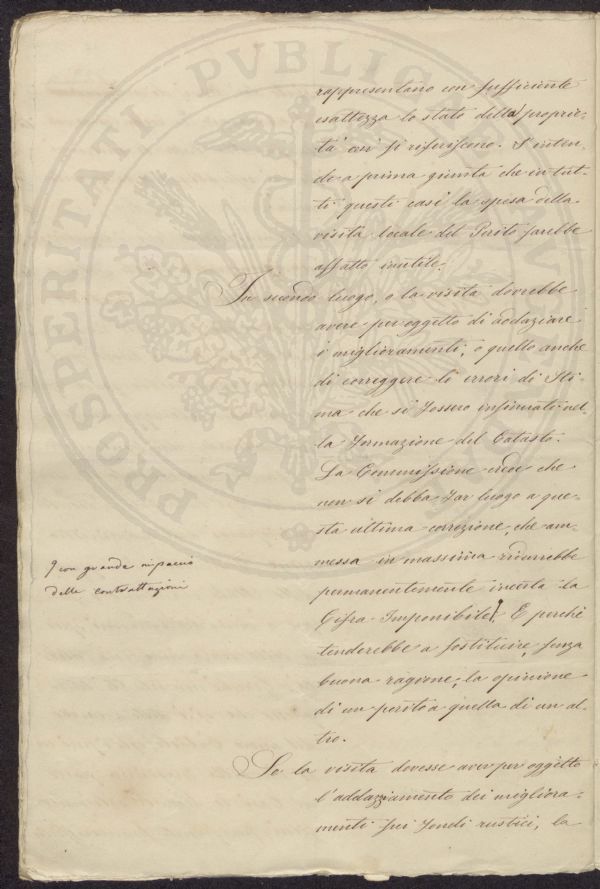 PROSPERITATI PVBLICAE
rappresentano con sufficiente
esattezza lo stato della proprie-
tà cui si riferiscono. S'inten-
de a prima giunta che in tut-
ti questi casi la spesa della
visita locale del Perito sarebbe
affatto inutile.
In secondo luogo, o la visita dovrebbe
avere per oggetto di addaziare
i miglioramenti, o quello anche
di correggere li errori di Sti-
ma che si fossero infirmati nel-
la formazione del Catasto.
La Commissione crede che
non si debba far luogo a que-
sta ultima correzione, che am-
messa in massima ridurrebbe
permanentemente incerta la
Cifra Imponibile. E perchè
tenderebbe a sostituire, senza
buona ragione, la opinione
di un perito a quella di un al-
tro.
Se la visita dovesse aver per oggetto
l'addazziamento dei migliora-
menti sui fondi rustici, la
con grande
delle contrattazioni